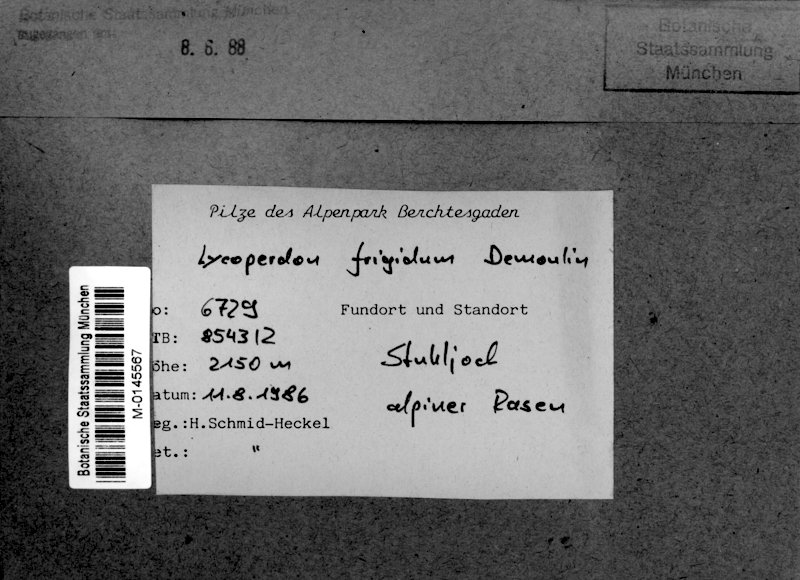 Botanische Staatssammlung München
zugegangen am:
8. 6. 88
Botanische
Staatssammlung
München
Pilze des Alpenpark Berchtesgaden
Lycoperdon frigidum Demoulin
o: 6729
TB: 8543|2
öhe: 2150 m
atum: 11.8.1986
eg.: H.Schmid-Heckel
et.: "
Fundort und Standort
Stuhljoch
alpiner Rasen
Botanische Staatssammlung München
M-0145567